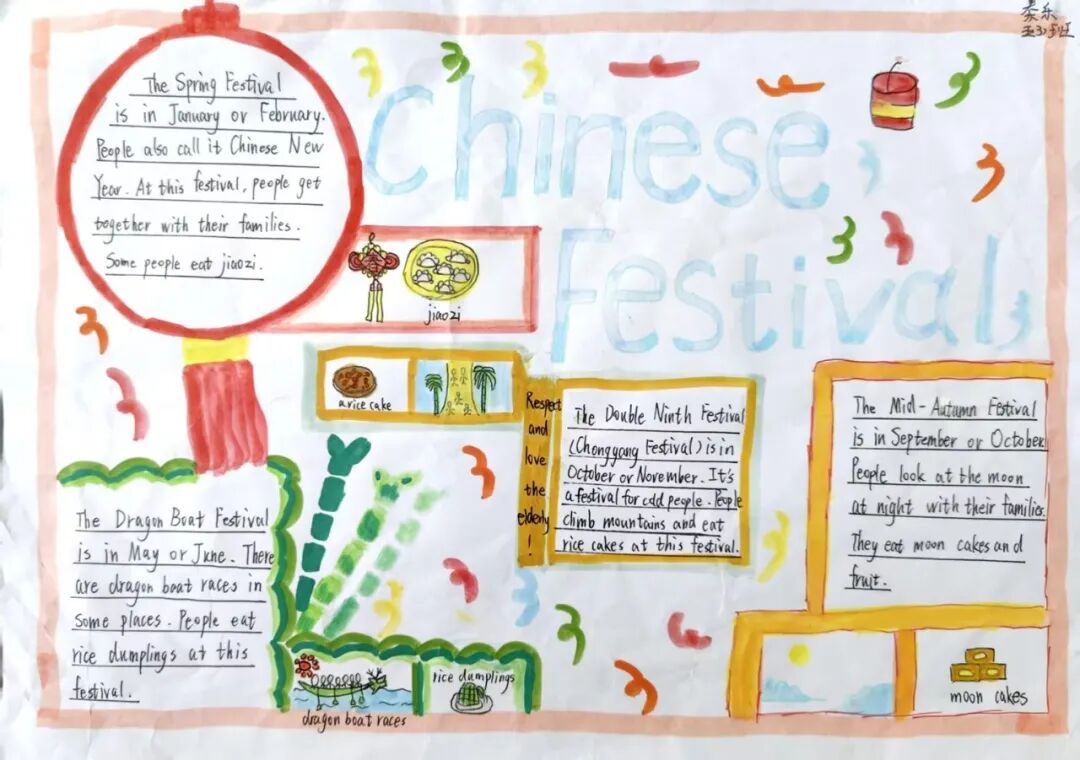 泰乐
五3班
Chinese
Festival
The Spring Festival
is in January or February.
People also call it Chinese New
Year. At this festival, people get
together with their families.
Some people eat jiaozi.
jiaozi
a rice cake
Respect
and
love
the
elderly
!
The Double Ninth Festival
(Chongyang Festival) is in
October or November. It's
a festival for odd people. People
climb mountains and eat
rice cakes at this festival.
The Mid-Autumn Festival
is in September or October.
People look at the moon
at night with their families.
They eat moon cakes and
fruit.
moon cakes
The Dragon Boat Festival
is in May or June. There
are dragon boat races in
some places. People eat
rice dumplings at this
festival.
dragon boat races
rice dumplings